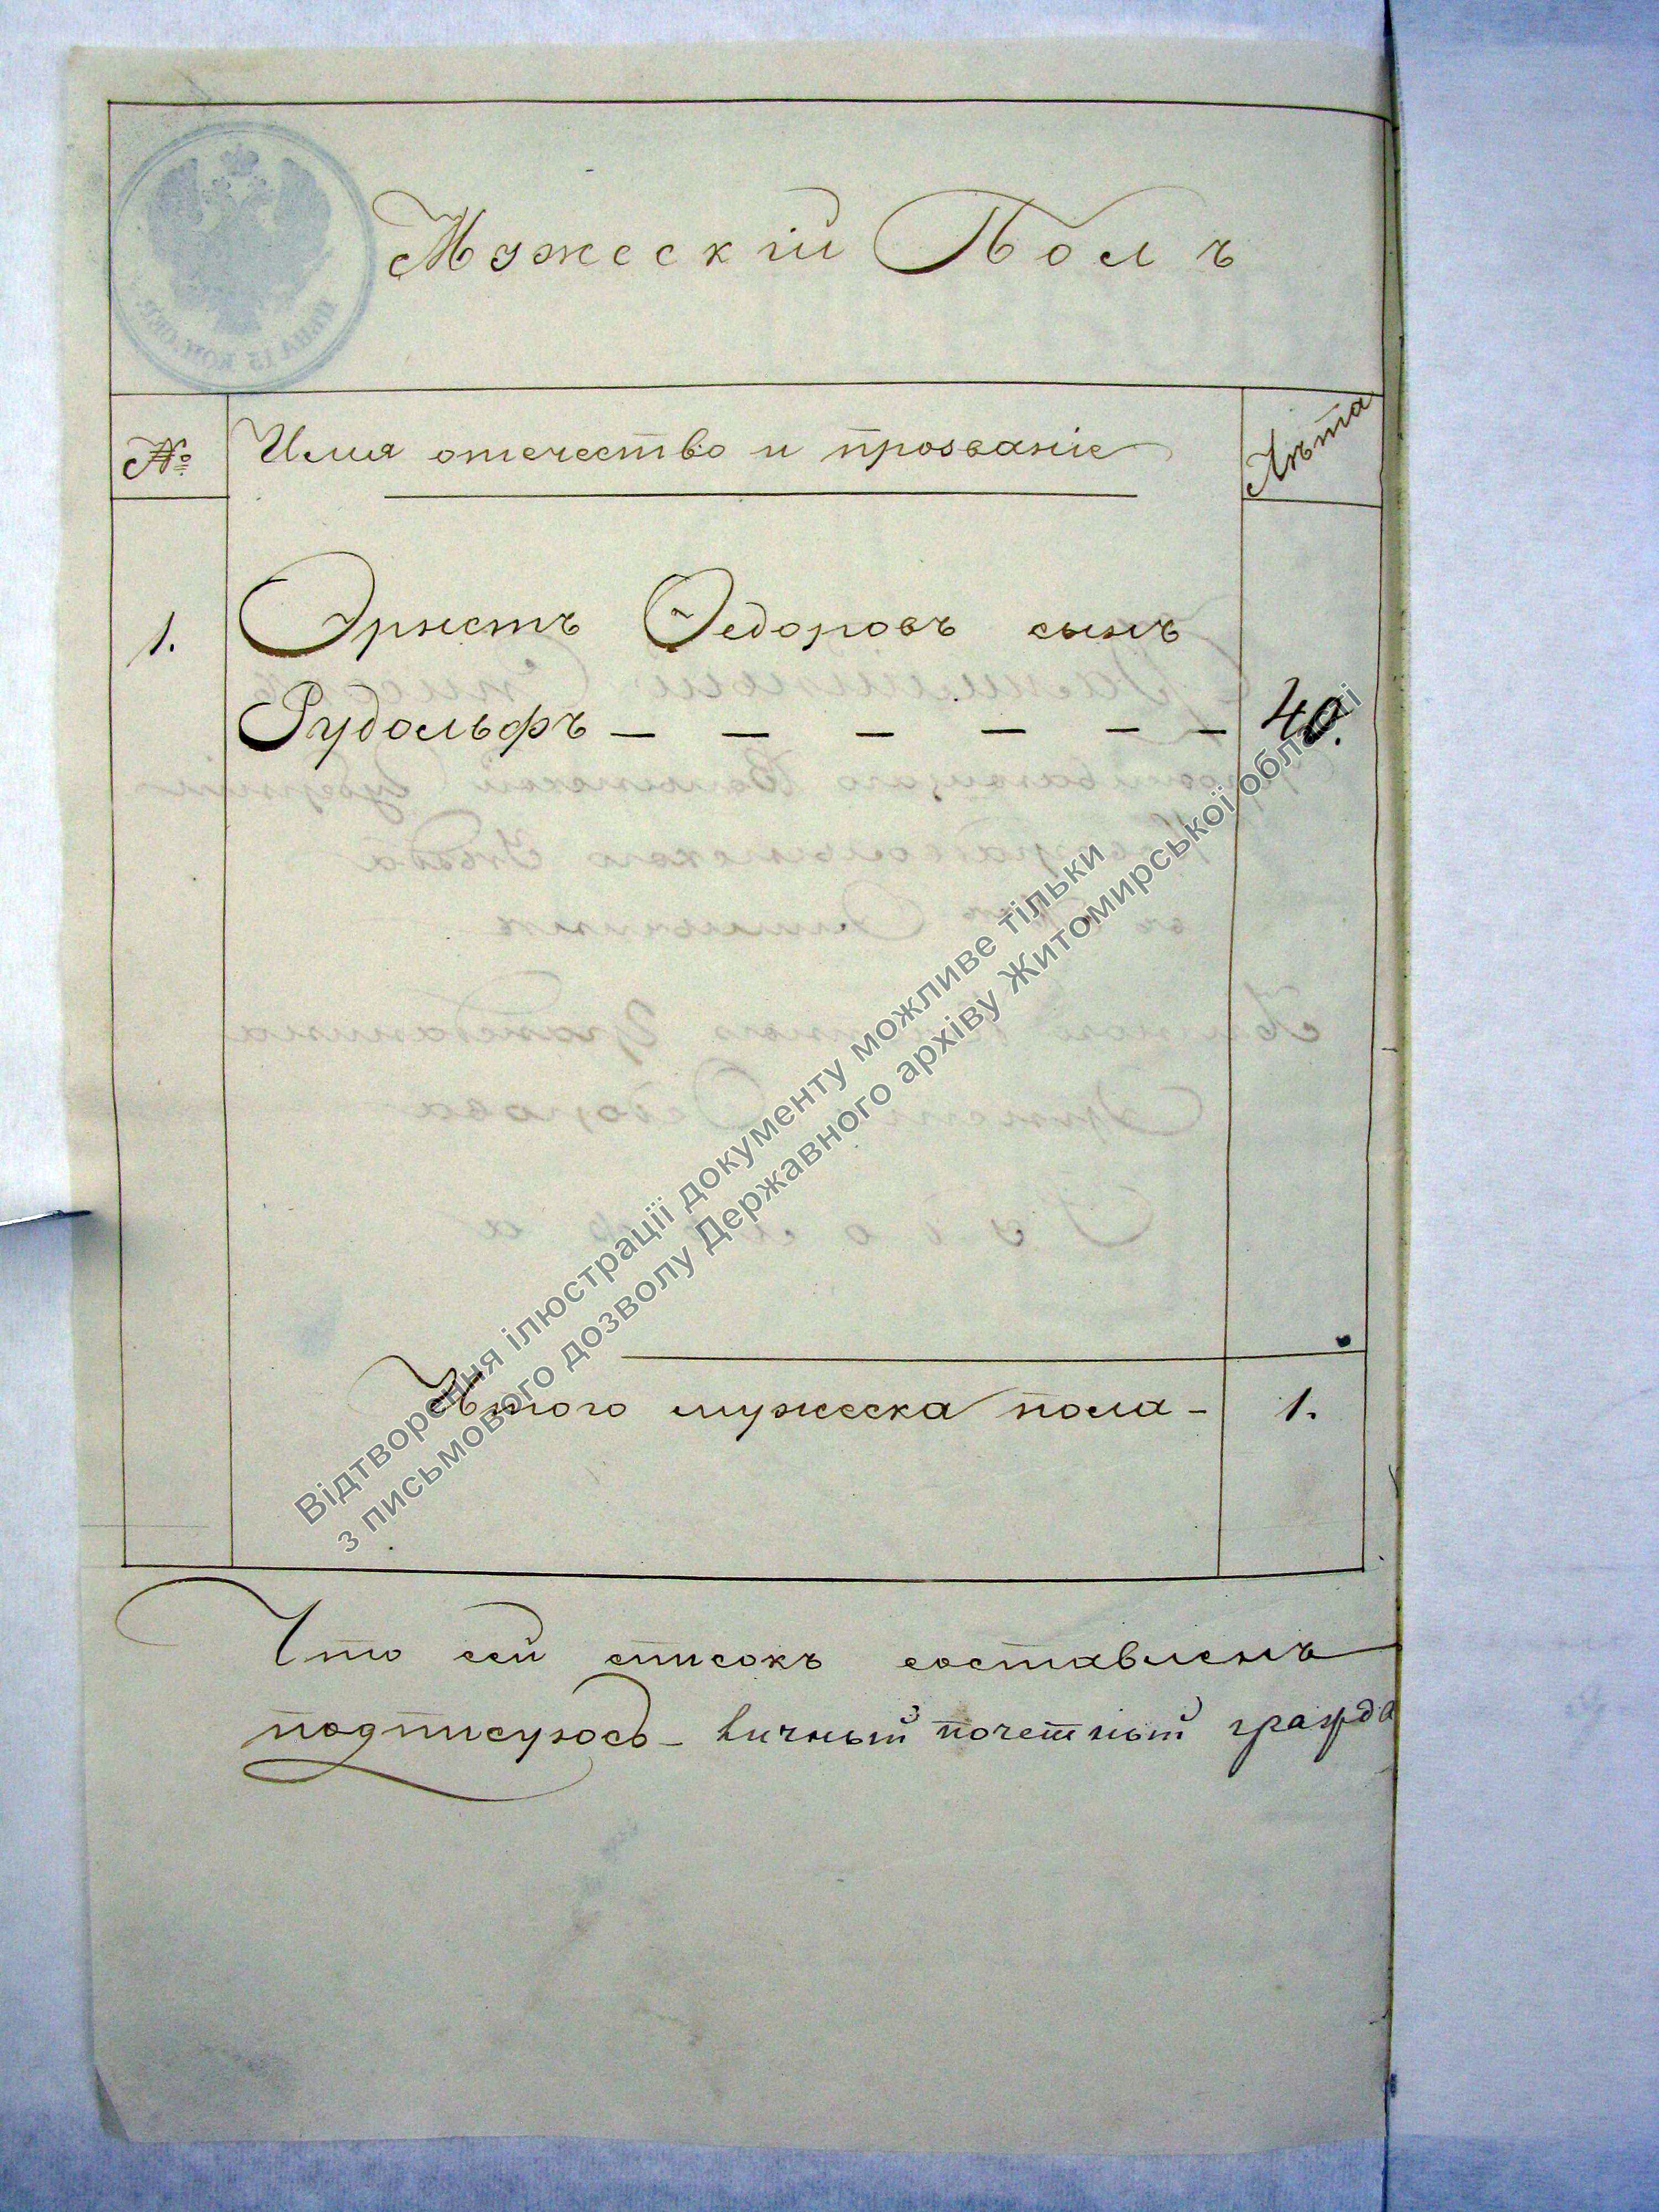 Мужескій Полъ
№ Имя отечество и прозваніе Лѣта
1. Эрнстъ Ѳедоровъ сынъ
Рудольфъ — — — — — — 40.
Итого мужеска пола - 1.
Что сей списокъ составленъ
подписуюсь - личный почетный гражда
Відтворення ілюстрації документу можливе тільки
з письмового дозволу Державного архіву Житомирської області